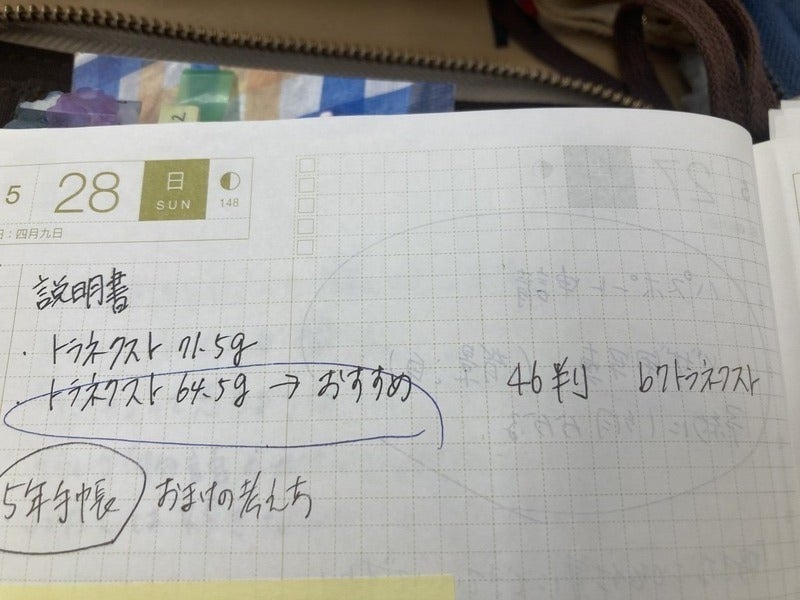 5 28 日 SUN 148
日：四月九日
説明書
・トラネクスト 71.5g
・トラネクスト 64.5g → おすすめ 46判 67トラネクスト
5年手帳 おまけの考え方
2